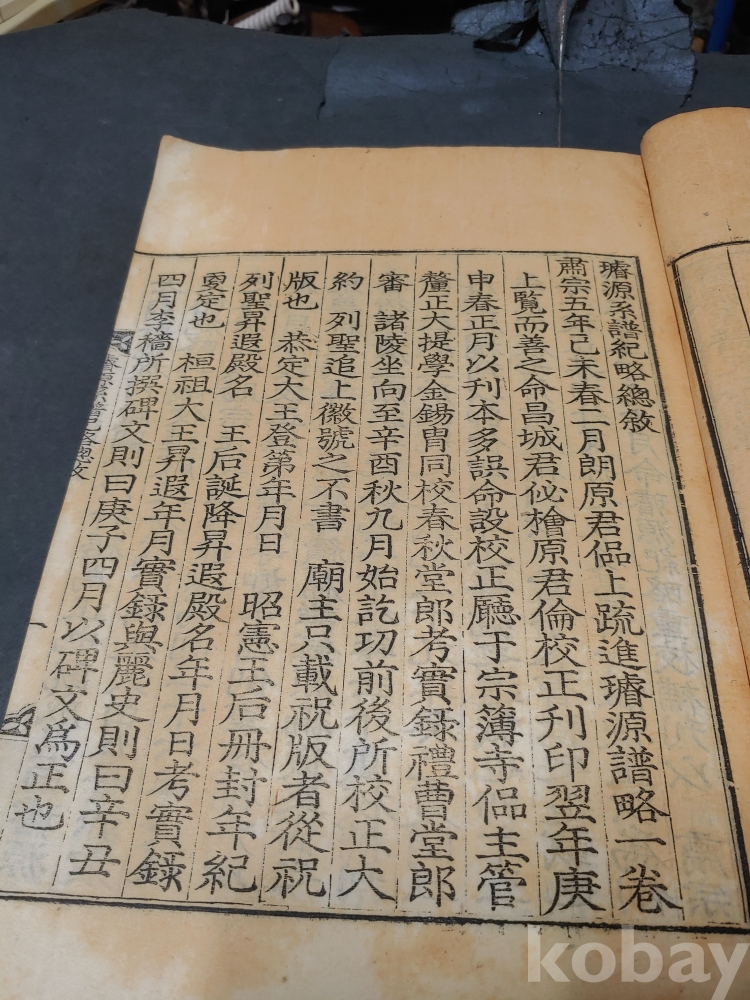 璿源系譜紀略總敘
肅宗五年己未春二月朗原君偘上疏進璿源譜略一卷
上覽而善之命昌城君佖檜原君倫校正刊印翌年庚
申春正月以刊本多誤命設校正廳于宗簿寺偘主管
釐正大提學金錫胄同校春秋堂郎考實錄禮曹堂郎
審 諸陵坐向至辛酉秋九月始訖功前後所校正大
約 列聖追上徽號之不書 廟主只載祝版者從祝
版也 恭定大王登第年月日 昭憲王后冊封年紀
列聖昇遐殿名 王后誕降昇遐殿名年月日考實錄
更定也 桓祖大王昇遐年月實錄與麗史則曰辛丑
四月李穡所撰碑文則曰庚子四月以碑文爲正也
璿源系譜紀略總敘
一
kobay